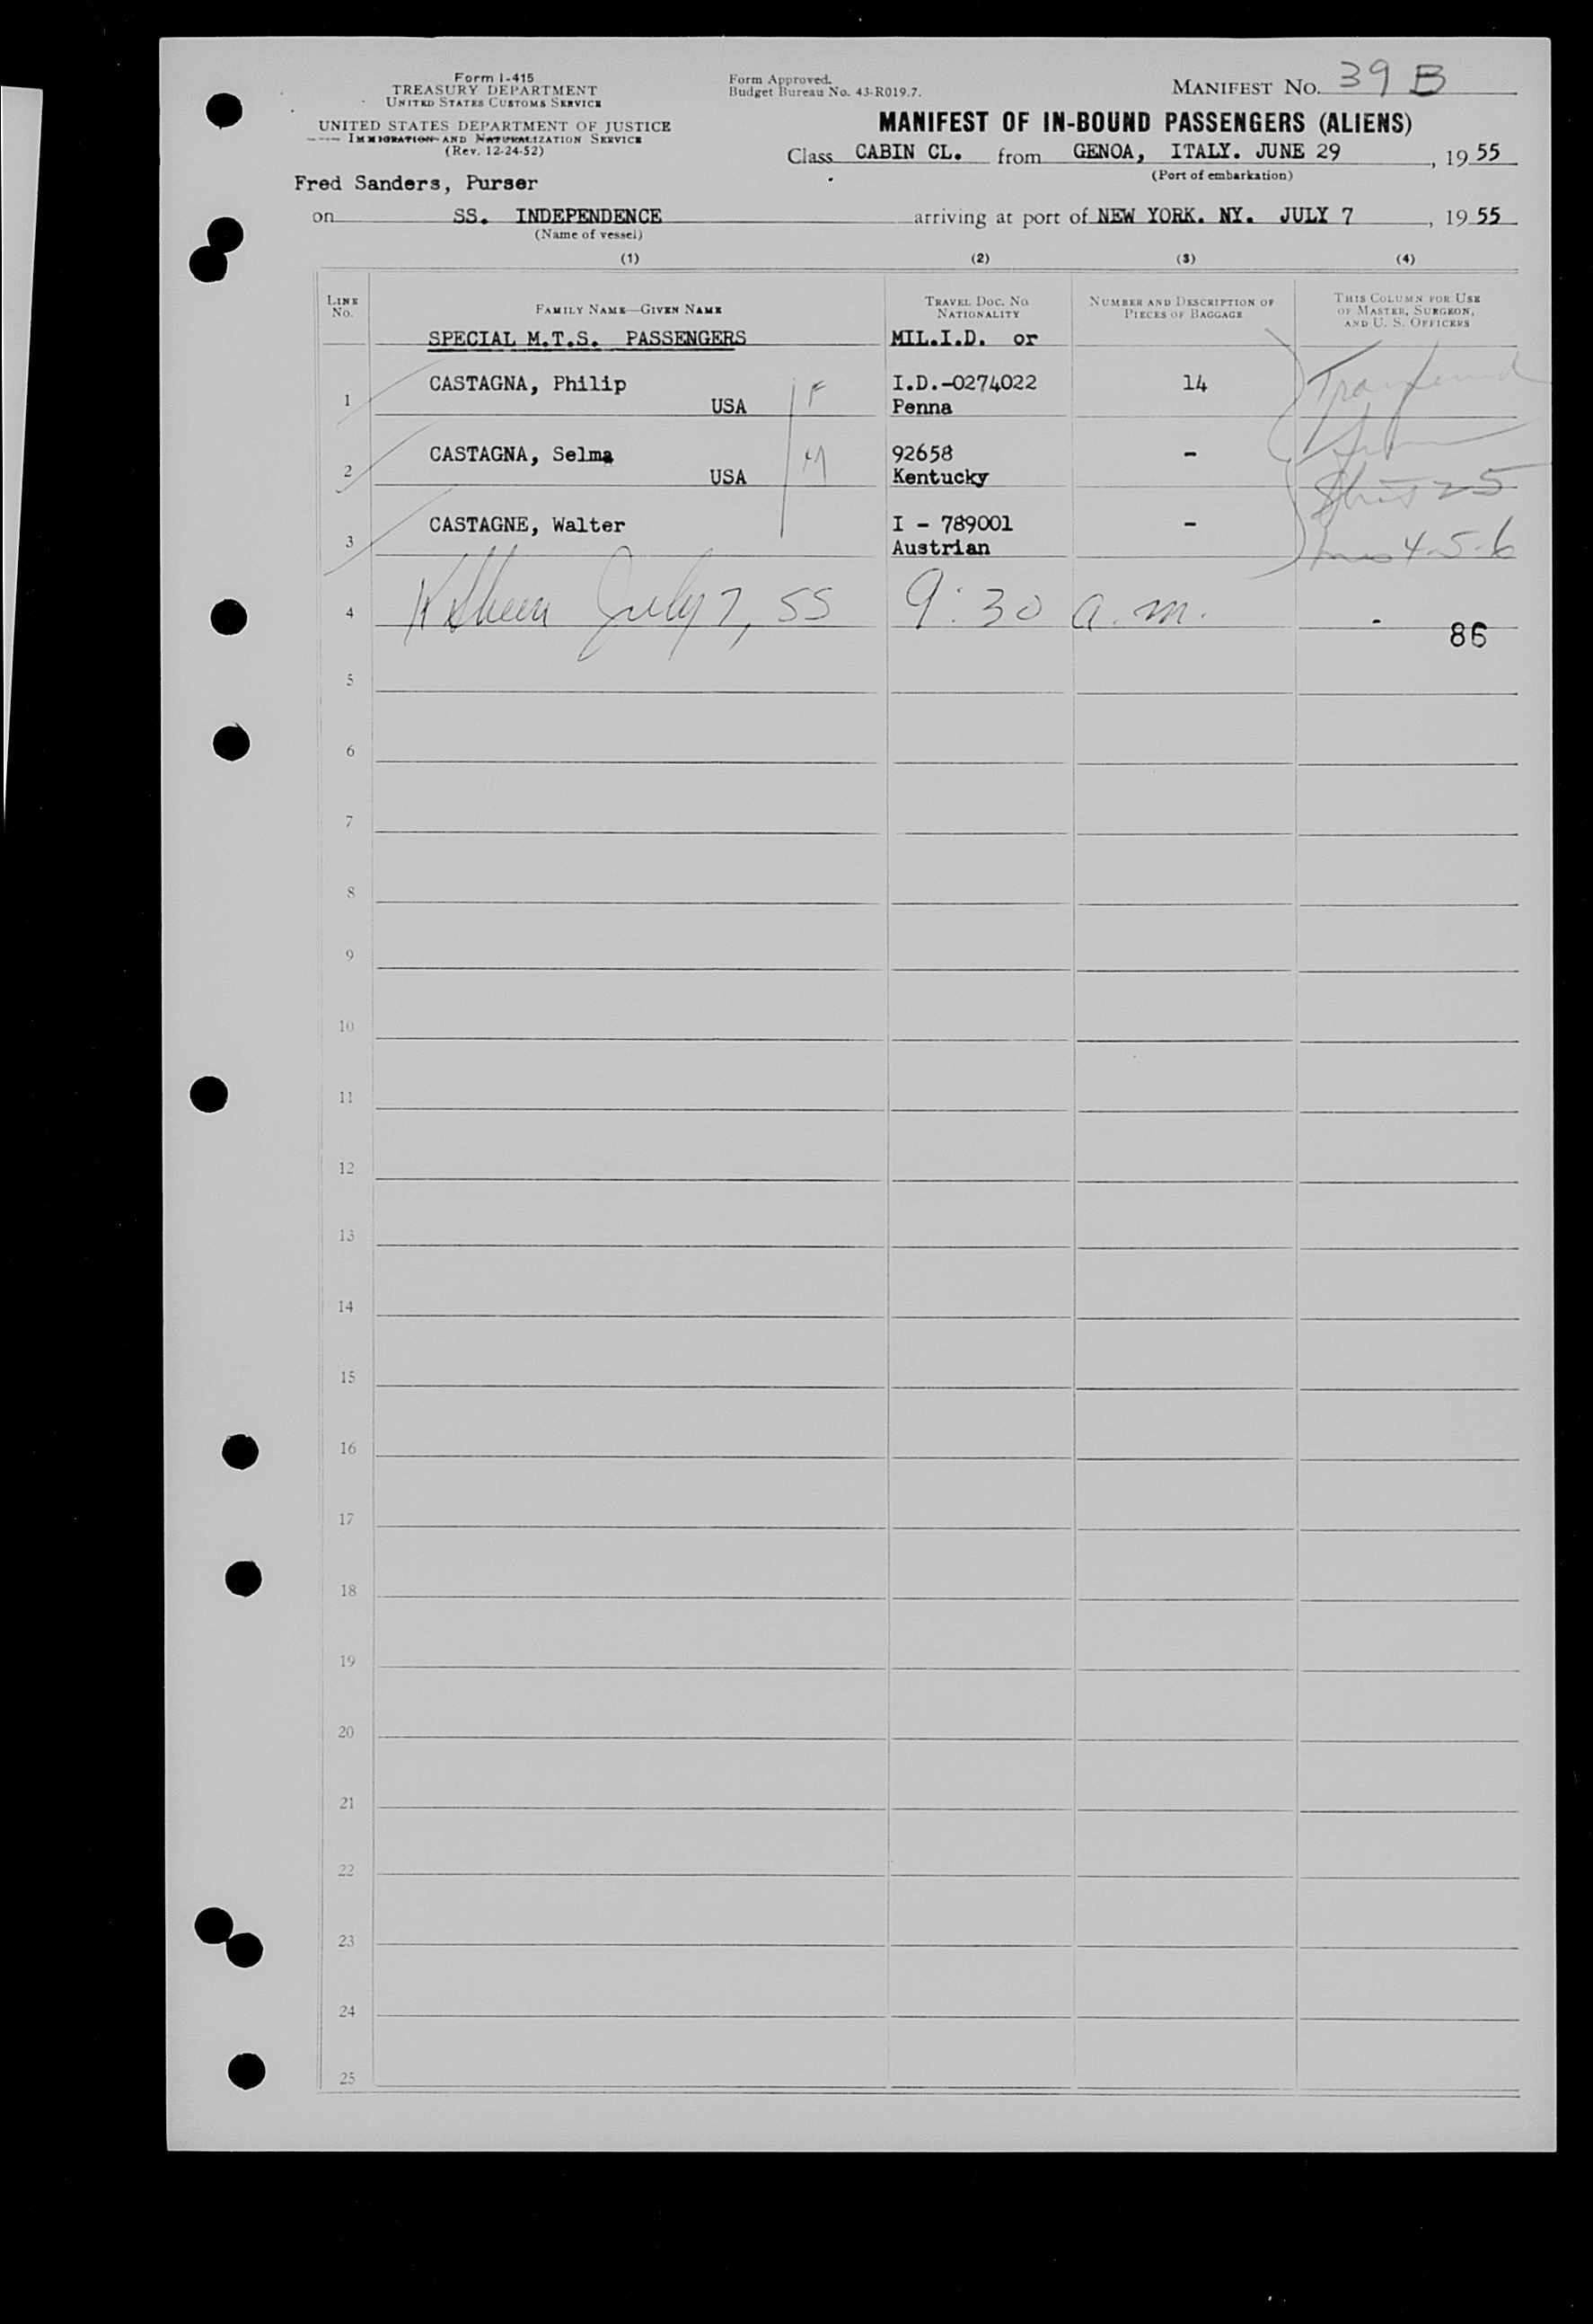 Form I-415
TREASURY DEPARTMENT
UNITED STATES CUSTOMS SERVICE
UNITED STATES DEPARTMENT OF JUSTICE
IMMIGRATION AND NATURALIZATION SERVICE
(Rev. 12-24-52)
Form Approved.
Budget Bureau No. 43-R019.7.
MANIFEST NO. 39 B
MANIFEST OF IN-BOUND PASSENGERS (ALIENS)
Class CABIN CL. from GENOA, ITALY. JUNE 29, 19 55
(Port of embarkation)
Fred Sanders, Purser
on SS. INDEPENDENCE arriving at port of NEW YORK. NY. JULY 7, 19 55
(Name of vessel)
(1) (2) (3) (4)
LINE NO. FAMILY NAME—GIVEN NAME TRAVEL DOC. NO. NATIONALITY NUMBER AND DESCRIPTION OF PIECES OF BAGGAGE THIS COLUMN FOR USE OF MASTER, SURGEON, AND U. S. OFFICERS
SPECIAL M.T.S. PASSENGERS MIL.I.D. or
1 CASTAGNA, Philip F I.D.-0274022 14
USA Penna
2 CASTAGNA, Selma M 92658 -
USA Kentucky
25
3 CASTAGNE, Walter I - 789001 -
Austrian
4-5-6
4 July 7, 55 9:30 a.m.
86
5
6
7
8
9
10
11
12
13
14
15
16
17
18
19
20
21
22
23
24
25